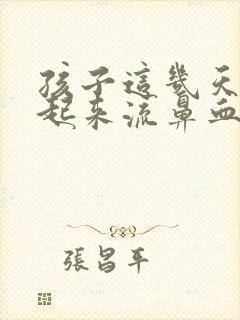 孩子這幾天
起來流鼻血
張昌平